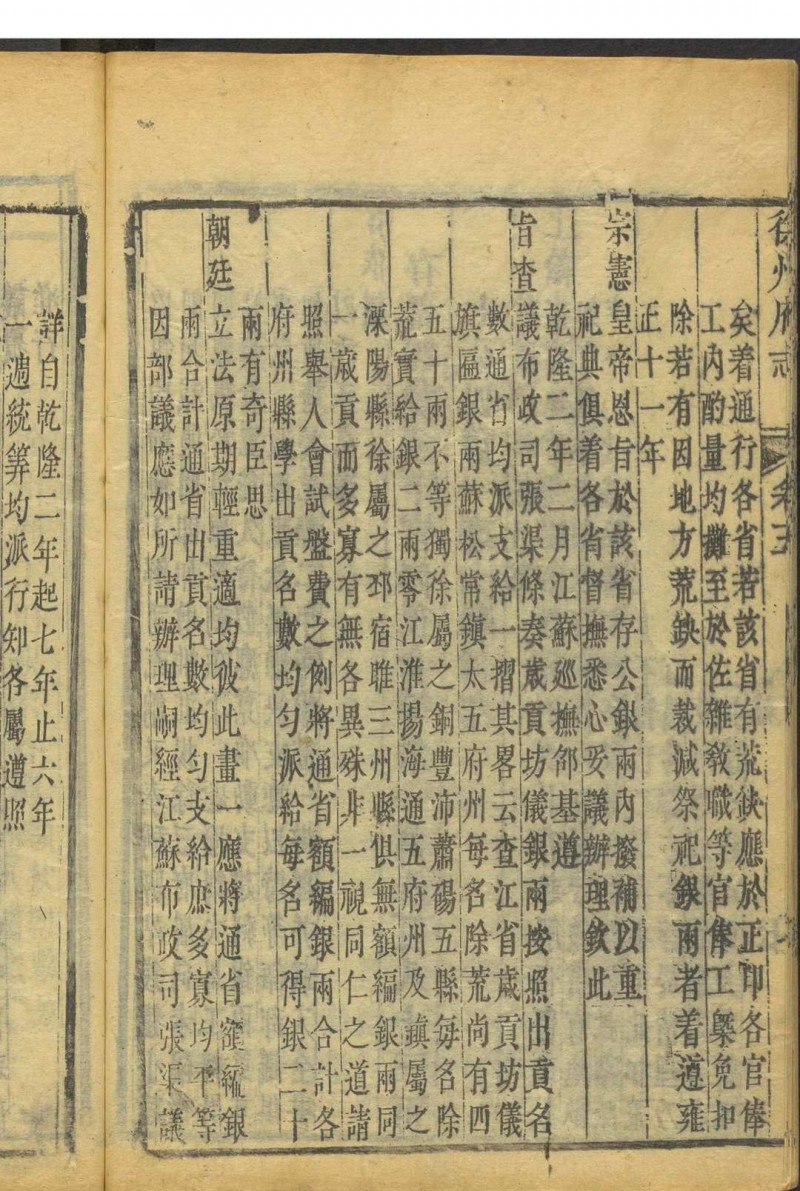 徐州府志 卷五
矣着通行各省若該省有荒缺應於正印各官俸
工內酌量均攤至於佐雜敎職等官俸工槩免扣
除若有因地方荒缺而裁減祭祀銀兩者着遵雍
正十一年
宗憲皇帝恩旨於該省存公銀兩內撥補以重
祀典俱着各省督撫悉心妥議辦理欽此
乾隆二年二月江蘇廵撫邵基遵
旨查議布政司張渠條奏歲貢坊儀銀兩按照出貢名
數通省均派支給一摺其畧云查江省歲貢坊儀
旗匾銀兩蘇松常鎭太五府州每名除荒尚有四
五十兩不等獨徐屬之銅豐沛蕭碭五縣每名除
荒實給銀二兩零江淮揚海通五府州及鎭屬之
溧陽縣徐屬之邳宿睢三州縣俱無額編銀兩同
一歲貢而多寡有無各異殊非一視同仁之道請
照舉人會試盤費之例將通省額編銀兩合計各
府州縣學出貢名數均勻派給每名可得銀二十
兩有奇臣思
朝廷立法原期輕重適均彼此畫一應將通省額編銀
兩合計通省出貢名數均勻支給庶多寡均平等
因部議應如所請辦理嗣經江蘇布政司張渠議
詳自乾隆二年起七年止六年
一週統筭均派行知各屬遵照